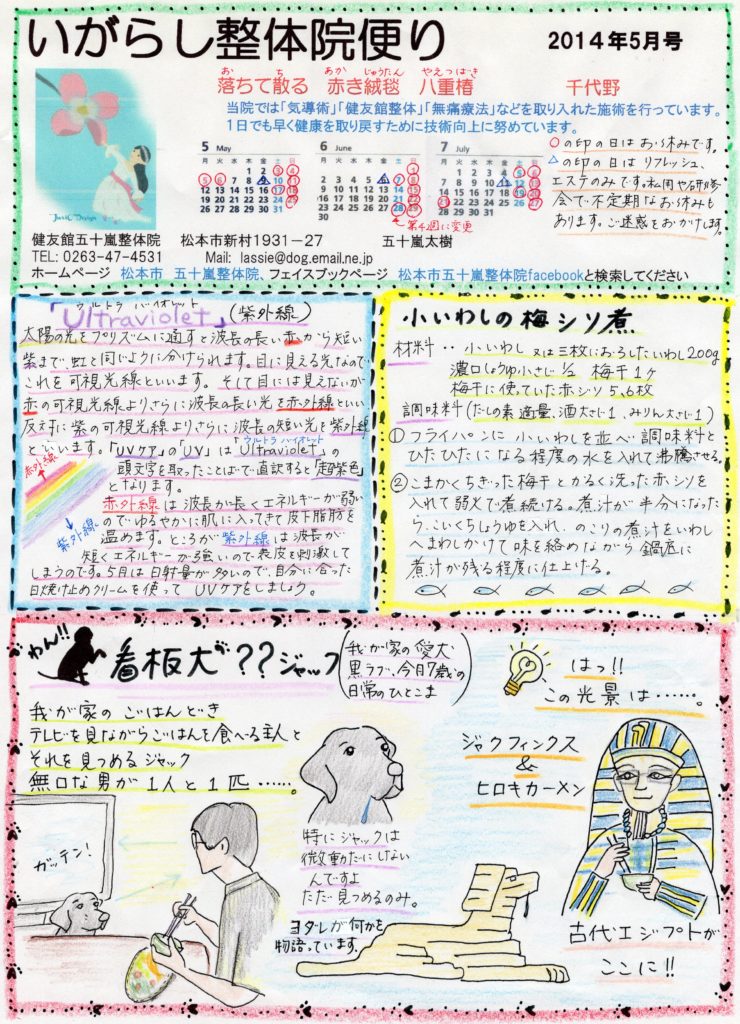 いがらし整体院便り
2014年5月号
落ちて散る 赤き絨毯 八重椿 千代野
お ち あか じゅうたん やえつばき
当院では「気導術」「健友館整体」「無痛療法」などを取り入れた施術を行っています。
1日でも早く健康を取り戻すために技術向上に努めています。
5 May
月 火 水 木 金 土 日
1 2 3 4
5 6 7 8 9 10 11
12 13 14 15 16 17 18
19 20 21 22 23 24 25
26 27 28 29 30 31
6 June
月 火 水 木 金 土 日
1
2 3 4 5 6 7 8
9 10 11 12 13 14 15
16 17 18 19 20 21 22
23 24 25 26 27 28 29
30
7 July
月 火 水 木 金 土 日
1 2 3 4 5 6
7 8 9 10 11 12 13
14 15 16 17 18 19 20
21 22 23 24 25 26 27
28 29 30 31
第4週に変更
○の印の日はお休みです。
△の印の日は リフレッシュ、
エステのみです。私用や研修
会で不定期なお休みも
あります。ご迷惑をおかけします。
健友館五十嵐整体院 松本市新村1931－27 五十嵐太樹
TEL: 0263-47-4531 Mail: lassie@dog.email.ne.jp
ホームページ 松本市 五十嵐整体院、フェイスブックページ 松本市五十嵐整体院facebookと検索してください
ウルトラ バイオレット
「Ultraviolet」(紫外線)
太陽の光をプリズムに通すと波長の長い赤から短い
紫まで、虹と同じように分けられます。目に見える光なので
これを可視光線といいます。そして目には見えないが
赤の可視光線よりさらに波長の長い光を赤外線といい
反対に紫の可視光線よりさらに波長の短い光を紫外線
といいます。「UVケア」の「UV」は「Ultraviolet」の
ウルトラ バイオレット
頭文字を取ったことばで直訳すると「超紫色」
となります。
赤外線
紫外線
赤外線は波長が長くエネルギーが弱い
のでゆるやかに肌に入ってきて皮下脂肪を
温めます。ところが紫外線は波長が
短くエネルギーが強いので表皮を刺激して
しまうのです。5月は日射量が多いので、自分に合った
日焼け止めクリームを使って UVケアをしましょう。
小いわしの梅シソ煮
材料‥小いわし 又は三枚におろしたいわし200g
濃口しょうゆ小さじ1/2 梅干1ヶ
梅干に使っていた赤シソ5、6枚
調味料(だしの素 適量、酒大さじ1、みりん大さじ1)
①フライパンに小いわしを並べ調味料と
ひたひたになる程度の水を入れて沸騰させる。
②こまかくちぎった梅干とかるく洗った赤シソを
入れて弱火で煮続ける。煮汁が半分になった
ら、こいくちしょうゆを入れ、のこりの煮汁をいわし
へまわしかけて味を絡めながら鍋底に
煮汁が残る程度に仕上げる。
わん!!
看板犬が??ジャック
(我が家の愛犬
黒ラブ、今月7歳の
日常のひとこま)
我が家のごはんどき
テレビを見ながらごはんを食べる主人と
それを見つめるジャック
無口な男が1人と1匹……。
ガッテン!
特にジャックは
微動だにしない
んですよ
ただ見つめるのみ。
ヨダレが何かを
物語っています。
はっ!!
この光景は……。
ジャクフィンクス
&
ヒロキカーメン
古代エジプトが
ここに!!